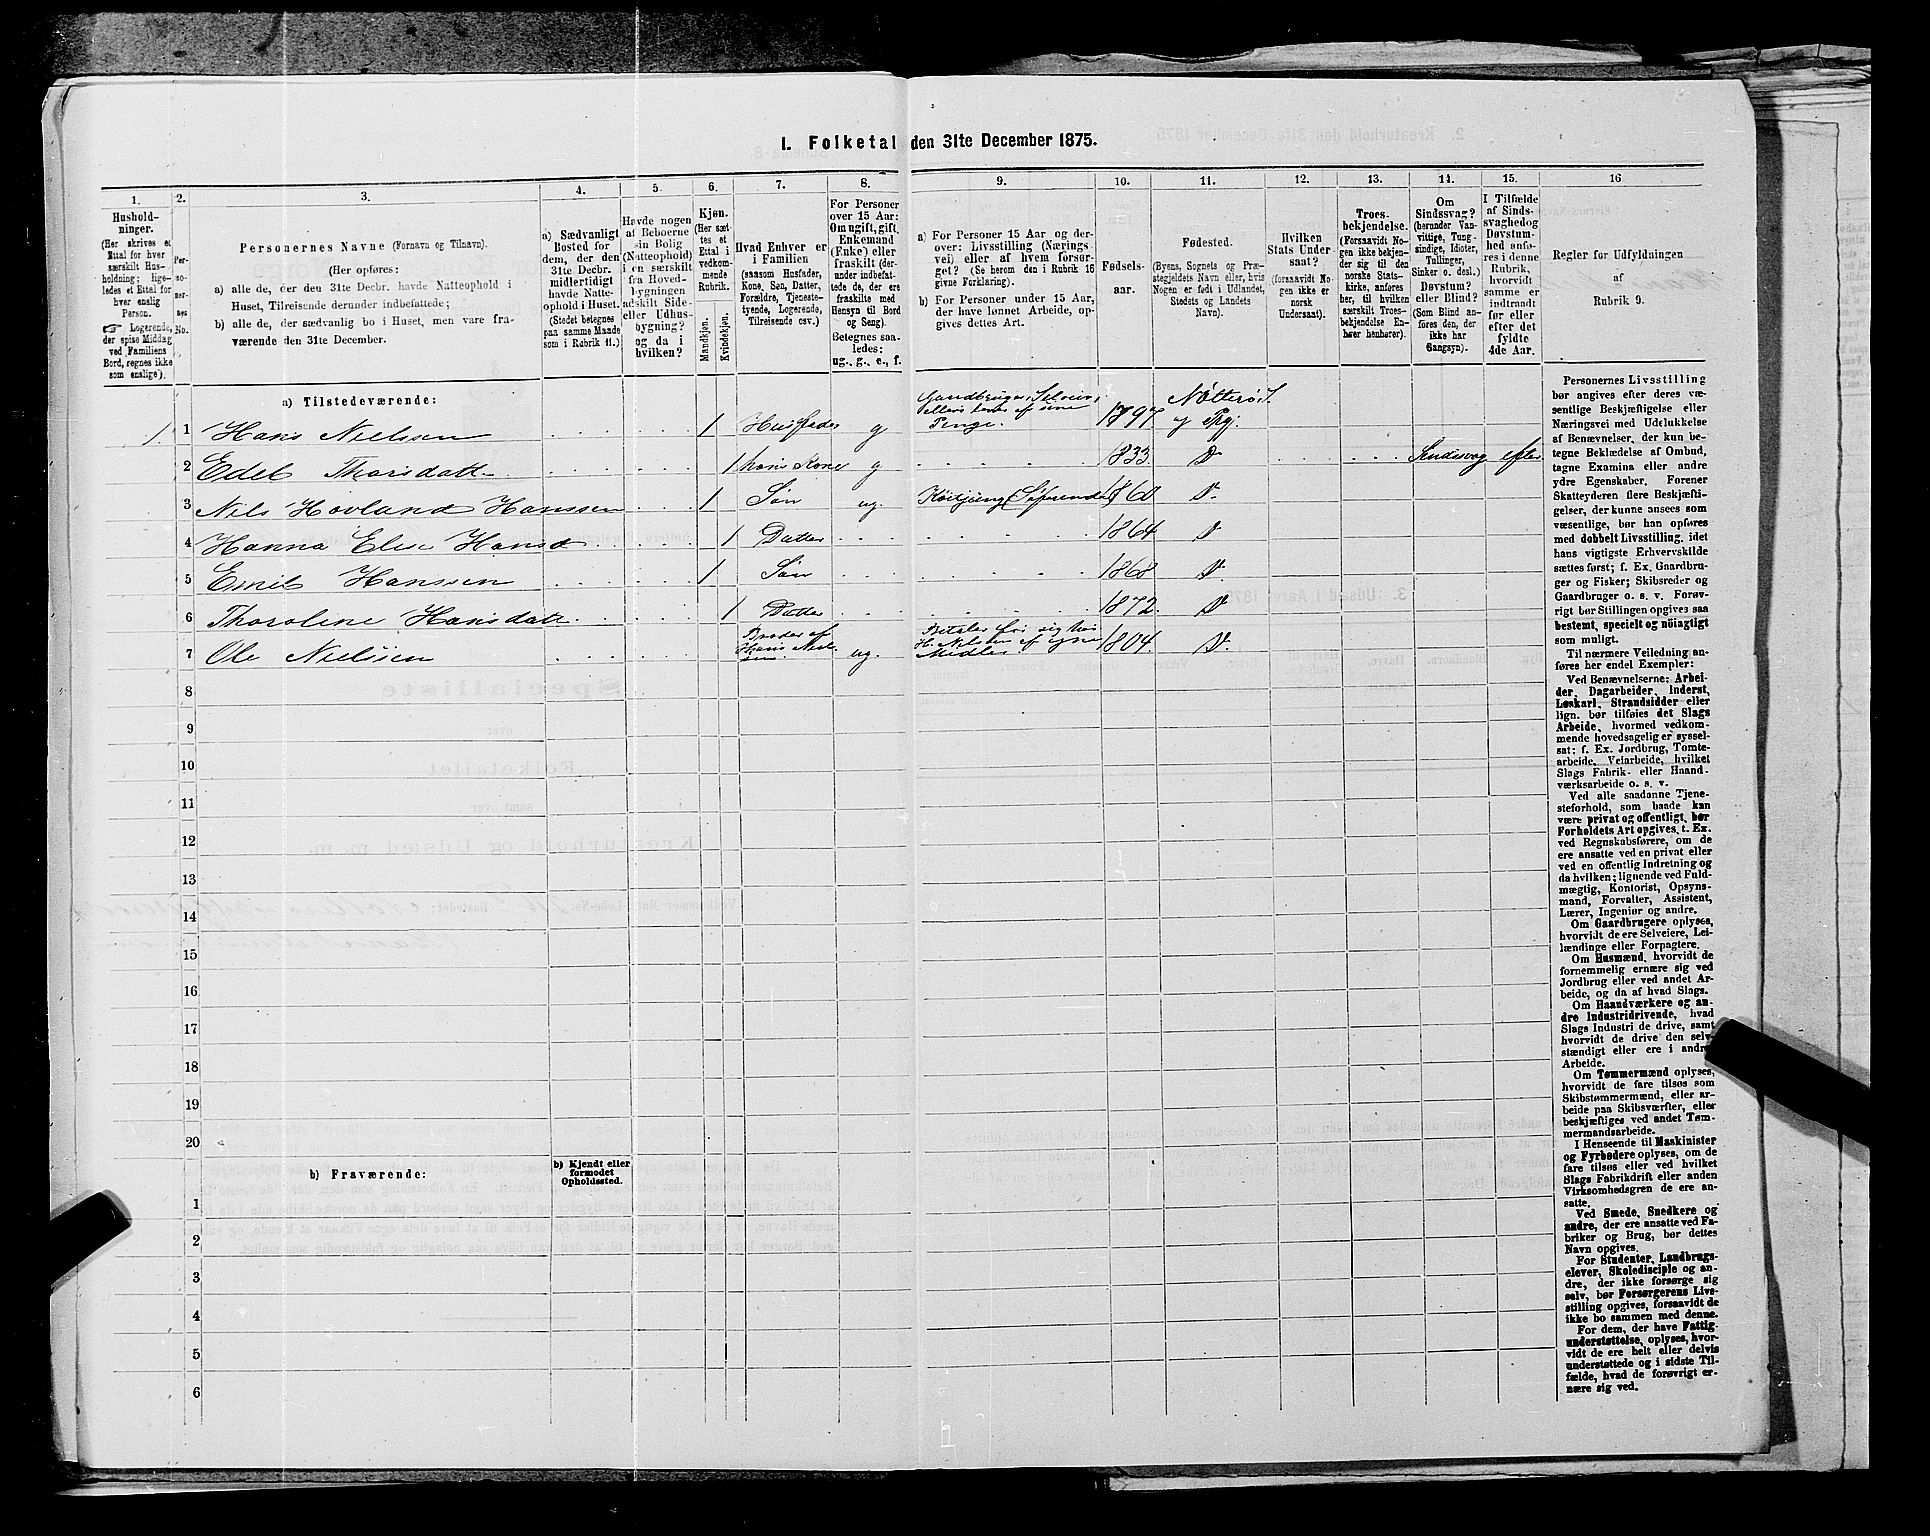 1. Folketal den 31te December 1875.
1. 2. 3. 4. 5. 6. 7. 8. 9. 10. 11. 12. 13. 14. 15. 16
Hushold-
ninger.
(Her skrives et
Ettal for hver
særskilt Hus-
holdning; lige-
ledes et Ettal for
hver enslig
Person.
☞ Logerende,
der spise Middag
ved Familiens
Bord, regnes ikke
som enslige).
Per-
so-
ner-
nes
No.
Personernes Navne (Fornavn og Tilnavn).
(Her opføres:
a) alle de, der den 31te Decbr. havde Natteophold i
Huset, Tilreisende derunder indbefattede;
b) alle de, der sædvanlig bo i Huset, men vare fra-
værende den 31te December.
a) Sædvanligt
Bosted for
dem, der den
31te Decbr.
midlertidigt
havde Natte-
ophold i Huset.
(Stedet betegnes
paa samme Maade
som i Rubrik 11.)
Havde nogen
af Beboerne
sin Bolig
(Natteophold)
i en særskilt
fra Hoved-
bygningen
adskilt Side-
eller Udhus-
bygning?
og da i
hvilken?
Kjøn.
(Her sæt-
tes et
Ettal i
vedkom-
mende
Rubrik.
Mandkjøn.
Kvindekjøn.
Hvad Enhver er
i Familien
(saasom Husfader,
Kone, Søn, Datter,
Forældre, Tjeneste-
tyende, Logerende,
Tilreisende osv.)
For Personer
over 15 Aar:
Om ugift, gift,
Enkemand
(Enke) eller
fraskilt (der-
under indbefat-
tede de, der ere
fraskilte med
Hensyn til Bord
og Seng).
Betegnes saa-
ledes:
ug., g., e., f.
a) For Personer 15 Aar og der-
over: Livsstilling (Nærings-
vei) eller af hvem forsør-
get? (Se herom den i Rubrik 16
givne Forklaring).
b) For Personer under 15 Aar,
der have lønnet Arbeide, op-
gives dettes Art.
Fødsels-
aar.
Fødested.
(Byens, Sognets og Præ-
stegjeldets Navn eller, hvis
Nogen er født i Udlandet,
Stedets og Landets
Navn).
Hvilken
Stats Under-
saat?
(forsaavidt No-
gen ikke er
norsk
Undersaat).
Troes-
bekjendelse.
(Forsaavidt No-
gen ikke bekjen-
der sig til den
norske Stats-
kirke, anføres
her, til hvilken
særskilt Troes-
bekjendelse En-
hver henhører).
Om
Sindssvag?
(herunder Van-
vittige, Tung-
sindige, Idioter,
Tullinger,
Sinker o. desl.)
Døvstum?
eller Blind?
(Som Blind an-
føres den, der
ikke har
Gangsyn).
I Tilfælde
af Sinds-
svaghed og
Døvstum-
hed anfø-
res i denne
Rubrik,
hvorvidt
samme er
indtraadt
før eller
efter det
fyldte
4de Aar.
Regler for Udfyldningen
af
Rubrik 9.
a) Tilstedeværende:
1 1 Hans Nielsen 1 Husfader g Gaardbruger, Selveier, Penge. 1797 Nøtterø S. og Prg:
2 Edel Thorsdatt. 1 hans Kone g 1833. D Sindssvag efter
3 Nils Hovland Hanssen 1 Søn ug. 1860 D.
4 Hanna Elise Hansd 1 Datter 1864 D
5 Emil Hanssen 1 Søn 1868 D.
6 Thoroline Hansdatt. 1 Datter 1872. D
7 Ole Nielsen Broder af Hans Niel-sen. ug. Betaler for sig hos H. Nielsen af egne Midler 1804. D.
8
9
10
11
12
13
14
15
16
17
18
19
20
b) Fraværende:
b) Kjendt eller
formodet
Opholdssted.
1
2
3
4
5
6
Personernes Livsstilling
bør angives efter deres væ-
sentlige Beskjæftigelse eller
Næringsvei med Udelukkelse
af Benævnelser, der kun be-
tegne Beklædelse af Ombud,
tagne Examina eller andre
ydre Egenskaber. Forener
Skatteyderen flere Beskjæfti-
gelser, der kunne ansees som
væsentlige, bør han opføres
med dobbelt Livsstilling, idet
hans vigtigste Erhvervskilde
sættes først; f. Ex. Gaardbru-
ger og Fisker; Skibsreder og
Gaardbruger o. s. v. Forøv-
rigt bør Stillingen opgives saa
bestemt, specielt og nöiagtigt
som muligt.
Til nærmere Veiledning an-
føres her endel Exempler:
Ved Benævnelserne: Arbei-
der, Dagarbeider, Inderst,
Løskarl, Strandsidder eller
lign. bør tilføies det Slags
Arbeide, hvormed vedkom-
mende hovedsagelig er syssel-
sat; f. Ex. Jordbrug, Tomte-
arbeide, Veiarbeide, hvilket
Slags Fabrik- eller Haand-
værksarbeide o. s. v.
Ved alle saadanne Tjene-
steforhold, som baade kan
være privat og offentligt, bør
Forholdets Art opgives, t. Ex.
ved Regnskabsførere, om de
ere ansatte ved en privat eller
ved en offentlig Indretning og
da hvilken; lignende ved Fuld-
mægtig, Kontorist, Opsyns-
mand, Forvalter, Assistent,
Lærer, Ingeniør og andre.
Om Gaardbrugere oplyses,
hvorvidt de ere Selveiere, Lei-
lændinge eller Forpagtere.
Om Husmænd, hvorvidt de
fornemmelig ernære sig ved
Jordbrug eller ved andet Ar-
beide, og da af hvad Slags.
Om Haandværkere og an-
dre Industridrivende, hvad
Slags Industri de drive, samt
hvorvidt de drive den selv-
stændigt eller ere i andres
Arbeide.
Om Tømmermænd oplyses,
hvorvidt de fare tilsøs som
Skibstømmermænd, eller ar-
beide paa Skibsværfter, eller
beskjæftiges ved andet Tøm-
mermandsarbeide.
I Henseende til Maskinister
og Fyrbødere oplyses, om de
fare tilsøs eller ved hvilket
Slags Fabrikdrift eller anden
Virksomhedsgren de ere an-
satte.
Ved Smede, Snedkere og
andre, der ere ansatte ved Fa-
briker og Brug, bør dettes
Navn opgives.
For Studenter, Landbrugs-
elever, Skoledisciple og an-
dre, der ikke forsørge sig
selv, bør Forsørgerens Livs-
stilling opgives, forsaavidt de
ikke bo sammen med denne.
For dem, der have Fattig-
understøttelse, oplyses, hvor-
vidt de ere helt eller delvis
understøttede og i sidste Til-
fælde, hvad de forøvrigt er-
nære sig ved.